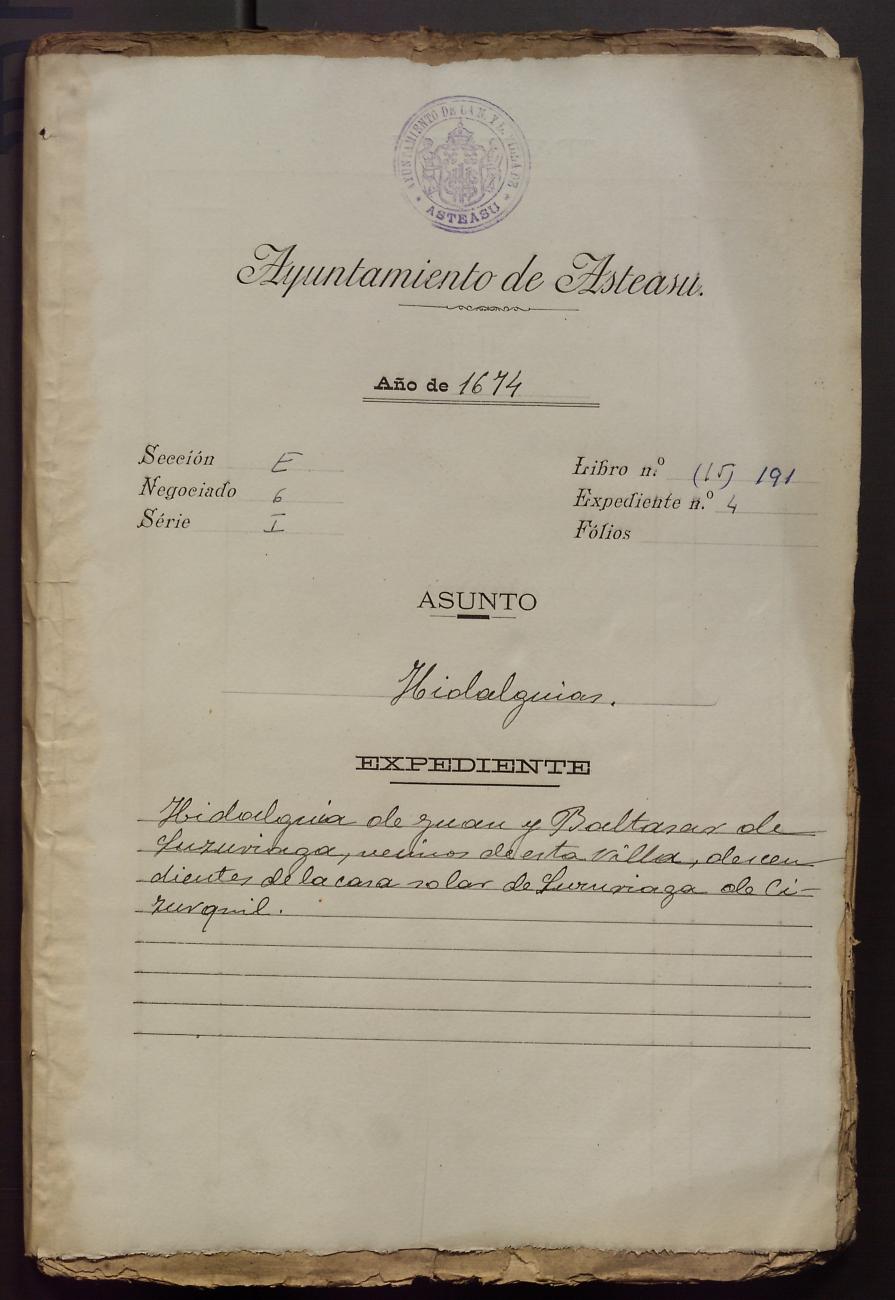 AYUNTAMIENTO DE LA N. Y L. VILLA DE
* ASTEASU *
Ayuntamiento de Asteasu.
Año de 1674
Sección E
Negociado 6
Série I
Libro n.º (15) 191
Expediente n.º 4
Fólios
ASUNTO
Hidalguias.
EXPEDIENTE
Hidalguia de Juan y Baltasar de
Luzuriaga, vecinos de esta Villa, descen
dientes de la casa solar de Luzuriaga de Ci-
zurquil.